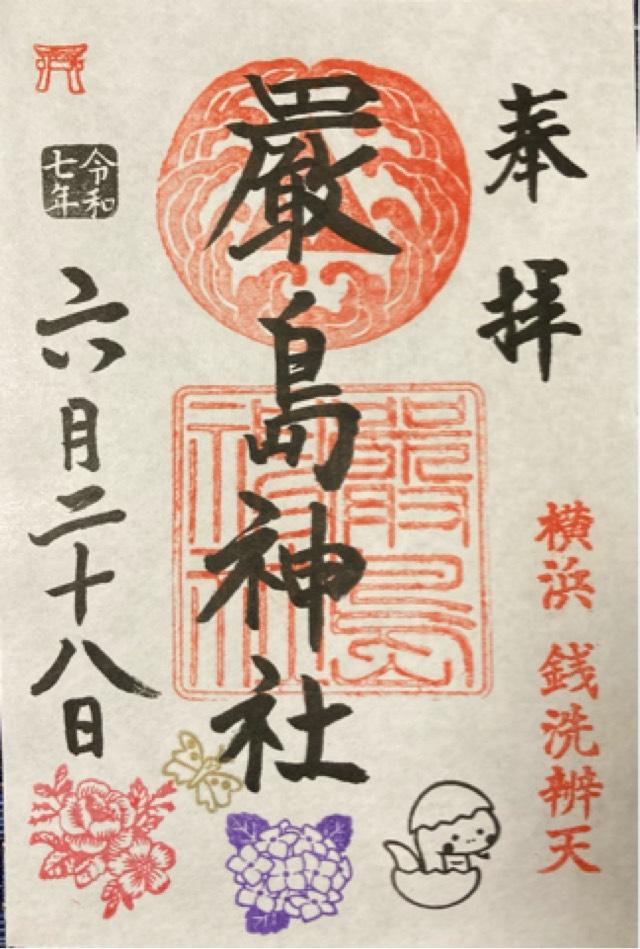 奉拝
横浜 銭洗辨天
厳島神社
嚴島神社
令和七年
六月二十八日